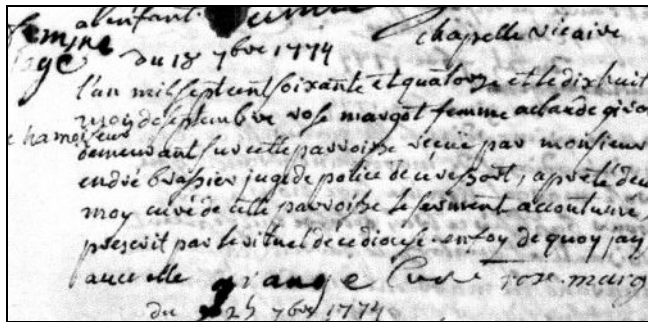 a l'enfant.
chapelle vicaire
femme
sage
du 18 7bre 1774
l'an mil sept cent soixante et quatorze et le dix huit
mois de septembre rose margot femme a claude giro
demeurant sur cette parroisse recüe par monsieur
endré brassier juge de police de ce ressort, a preté deu
moy curé de cette parroisse le serment accoutumé,
prescrit par le rituel de ce diocese. en foy de quoy jay
avec elle grange Curé rose marg
du 24 7bre 1774